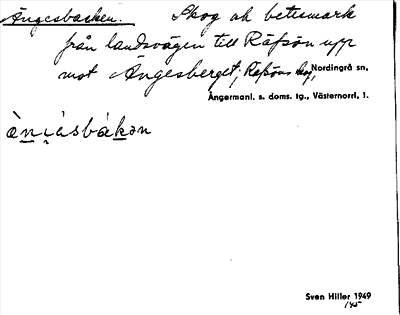 Ängesbacken. Skog ok betesmark
från landsvägen till Räfsön upp
mot Ängesberget; Räfsöns by, Nordingrå sn,
Ångermanl. s. doms. tg., Västernorrl. l.
Sven Hiller 1949